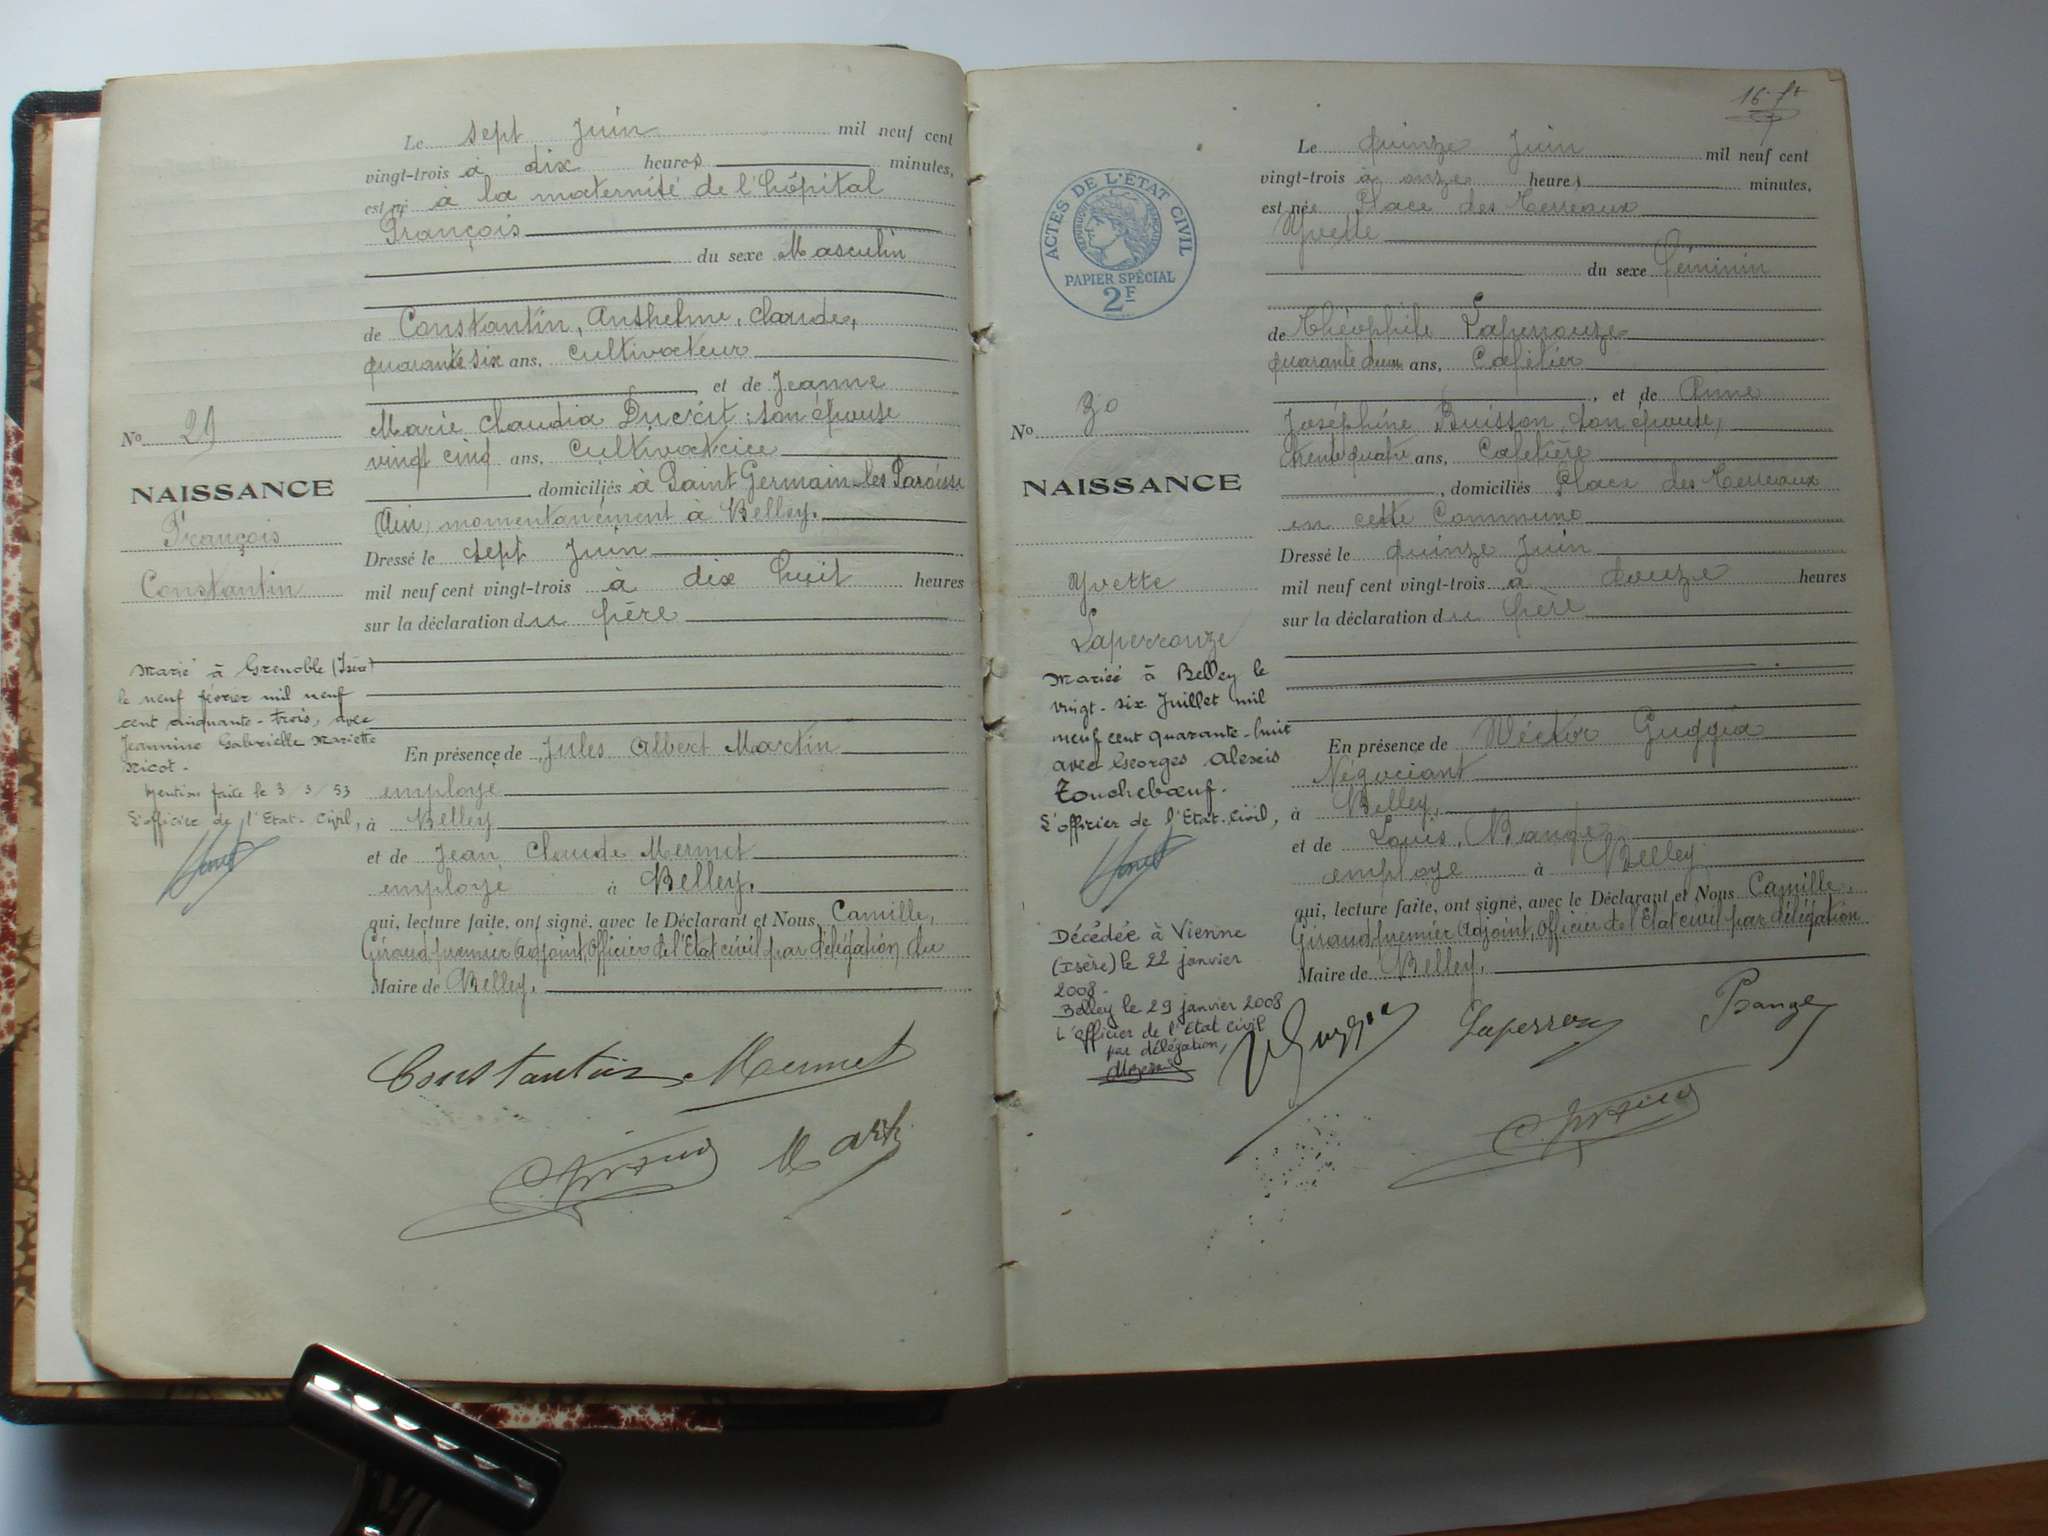 Le sept Juin mil neuf cent
vingt-trois à dix heures minutes,
est né à la maternité de l'hôpital
François
du sexe Masculin
de Constantin, Anthelme, Claude,
quarante six ans, cultivateur
et de Jeanne
Marie Claudia Ducrêt, son épouse
vingt cinq ans, cultivatrice
domiciliés à Saint Germain-les Paroisses
(Ain) momentanément à Belley.
Dressé le sept Juin
mil neuf cent vingt-trois à dix huit heures
sur la déclaration du père
En présence de Jules Albert Martin
employé
à Belley
et de Jean Claude Mermet
employé à Belley.
qui, lecture faite, ont signé, avec le Déclarant et Nous Camille,
Giraud premier Adjoint, Officier de l'Etat civil par délégation du
Maire de Belley.
Constantin Mermet
C. Giraud Martin
No 29
NAISSANCE
François
Constantin
Marié à Grenoble (Isère)
le neuf février mil neuf
cent cinquante-trois, avec
Jeannine Gabrielle Mariette
Nicot.
Mention faite le 3/3/53
L'officier de l'Etat-Civil,
16 ft
ACTES DE L'ÉTAT CIVIL
RÉPUBLIQUE FRANÇAISE
PAPIER SPÉCIAL
2F
Le quinze Juin mil neuf cent
vingt-trois à onze heures minutes,
est née Place des Terreaux
Yvette
du sexe féminin
de Théophile Laperrouze
quarante deux ans, Cafetier
, et de Anne
Joséphine Buisson, son épouse,
trente quatre ans, Cafetière
, domiciliés Place des Terreaux
en cette Commune
Dressé le quinze Juin
mil neuf cent vingt-trois à douze heures
sur la déclaration du père
En présence de Victor Guggia
Négociant
à Belley,
et de Louis, Bange
employé à Belley
qui, lecture faite, ont signé, avec le Déclarant et Nous Camille,
Giraud premier Adjoint, Officier de l'Etat civil par délégation
Maire de Belley.
V Guggia Laperrouze Bange
C. Giraud
No 30
NAISSANCE
Yvette
Laperrouze
Mariée à Belley le
vingt-six Juillet mil
neuf cent quarante-huit
avec Georges Alexis
Touchebœuf.
L'officier de l'Etat-Civil,
Décédée à Vienne
(Isère) le 22 janvier
2008.
Belley le 29 janvier 2008
L'officier de l'Etat Civil
par délégation,